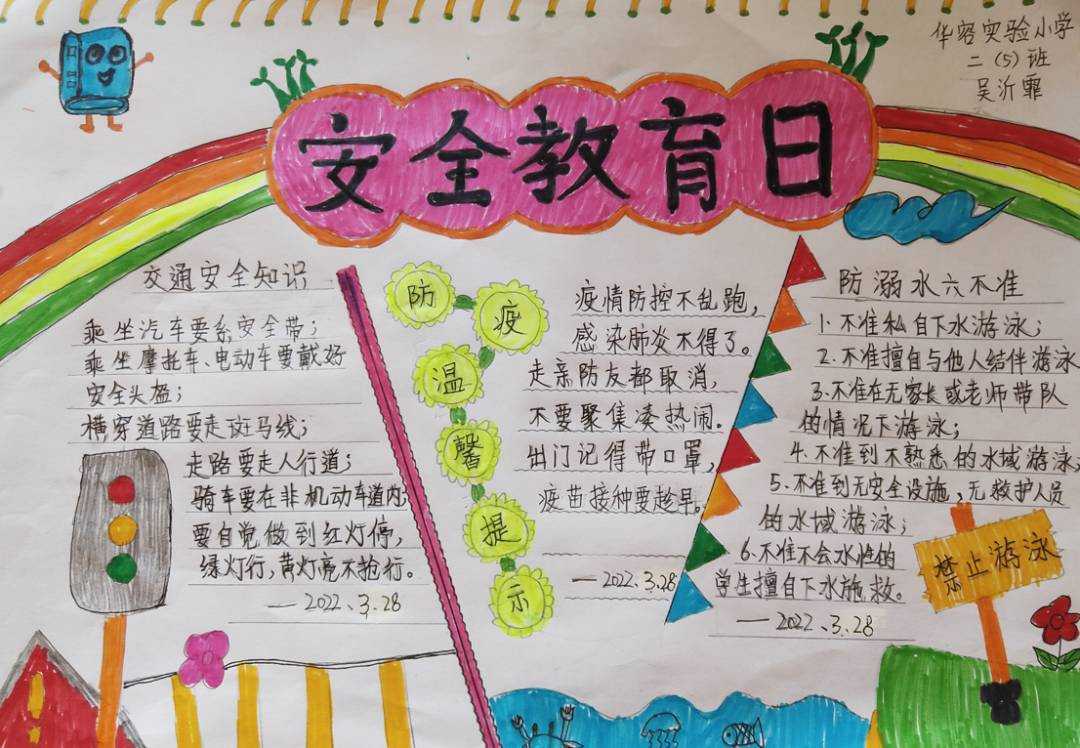 华容实验小学
二（5）班
吴沂霏
安全教育日
交通安全知识
乘坐汽车要系安全带；
乘坐摩托车、电动车要戴好
安全头盔；
横穿道路要走斑马线；
走路要走人行道；
骑车要在非机动车道内；
要自觉做到红灯停，
绿灯行，黄灯亮不抢行。
—2022.3.28
防疫温馨提示
疫情防控不乱跑，
感染肺炎不得了。
走亲防友都取消，
不要聚集凑热闹。
出门记得带口罩，
疫苗接种要趁早。
—2022.3.28
防溺水六不准
1.不准私自下水游泳；
2.不准擅自与他人结伴游泳
3.不准在无家长或老师带队
的情况下游泳；
4.不准到不熟悉的水域游泳；
5.不准到无安全设施、无救护人员
的水域游泳；
6.不准不会水性的
学生擅自下水施救。
—2022.3.28
禁止游泳